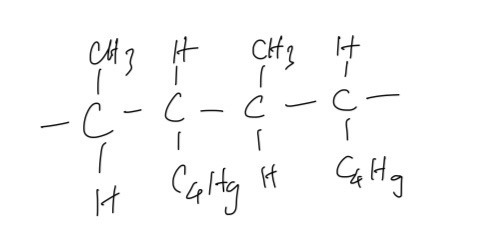 CH3 H CH3 H
— C — C — C — C —
H C4H9 H C4H9